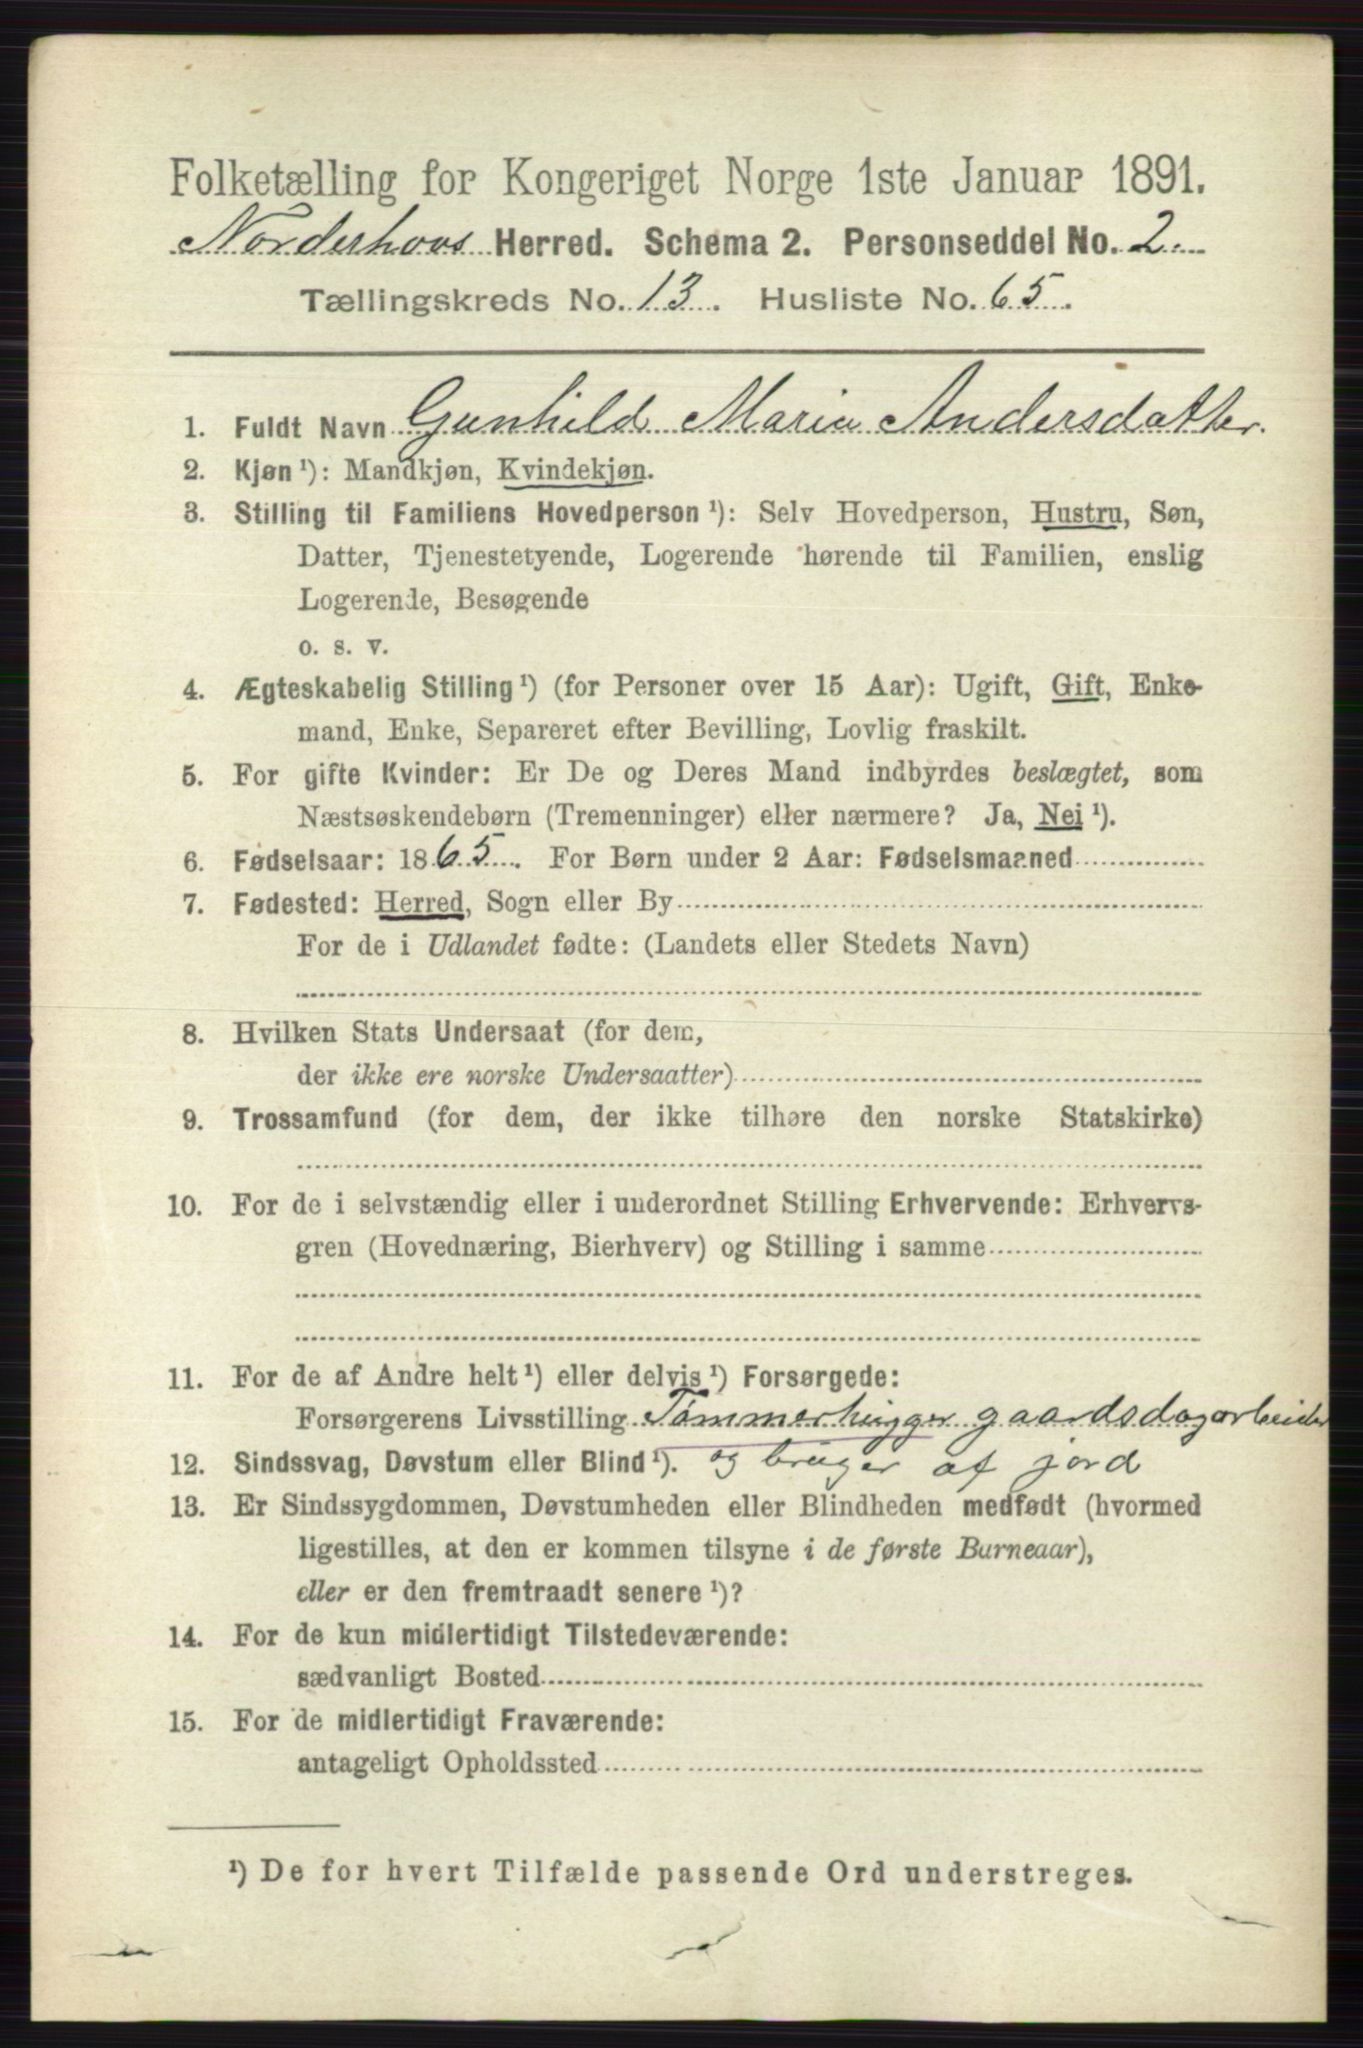 Folketælling for Kongeriget Norge 1ste Januar 1891.
Norderhovs Herred. Schema 2. Personseddel No. 2.
Tællingskreds No. 13. Husliste No. 65.
1. Fuldt Navn Gunhild Maria Andersdatter.
2. Kjøn ¹): Mandkjøn, Kvindekjøn.
3. Stilling til Familiens Hovedperson ¹): Selv Hovedperson, Hustru, Søn,
Datter, Tjenestetyende, Logerende hørende til Familien, enslig
Logerende, Besøgende
o. s. v.
4. Ægteskabelig Stilling ¹) (for Personer over 15 Aar): Ugift, Gift, Enke-
mand, Enke, Separeret efter Bevilling, Lovlig fraskilt.
5. For gifte Kvinder: Er De og Deres Mand indbyrdes beslægtet, som
Næstsøskendebørn (Tremenninger) eller nærmere? Ja, Nei ¹).
6. Fødselsaar: 1865. For Børn under 2 Aar: Fødselsmaaned
7. Fødested: Herred, Sogn eller By
For de i Udlandet fødte: (Landets eller Stedets Navn)
8. Hvilken Stats Undersaat (for dem,
der ikke ere norske Undersaatter)
9. Trossamfund (for dem, der ikke tilhøre den norske Statskirke)
10. For de i selvstændig eller i underordnet Stilling Erhvervende: Erhvervs-
gren (Hovednæring, Bierhverv) og Stilling i samme
11. For de af Andre helt ¹) eller delvis ¹) Forsørgede:
Forsørgerens Livsstilling Tømmerhugger gaardsdagarbeider
12. Sindssvag, Døvstum eller Blind ¹). og bruger af jord
13. Er Sindssygdommen, Døvstumheden eller Blindheden medfødt (hvormed
ligestilles, at den er kommen tilsyne i de første Barneaar),
eller er den fremtraadt senere ¹)?
14. For de kun midlertidigt Tilstedeværende:
sædvanligt Bosted
15. For de midlertidigt Fraværende:
antageligt Opholdssted
¹) De for hvert Tilfælde passende Ord understreges.